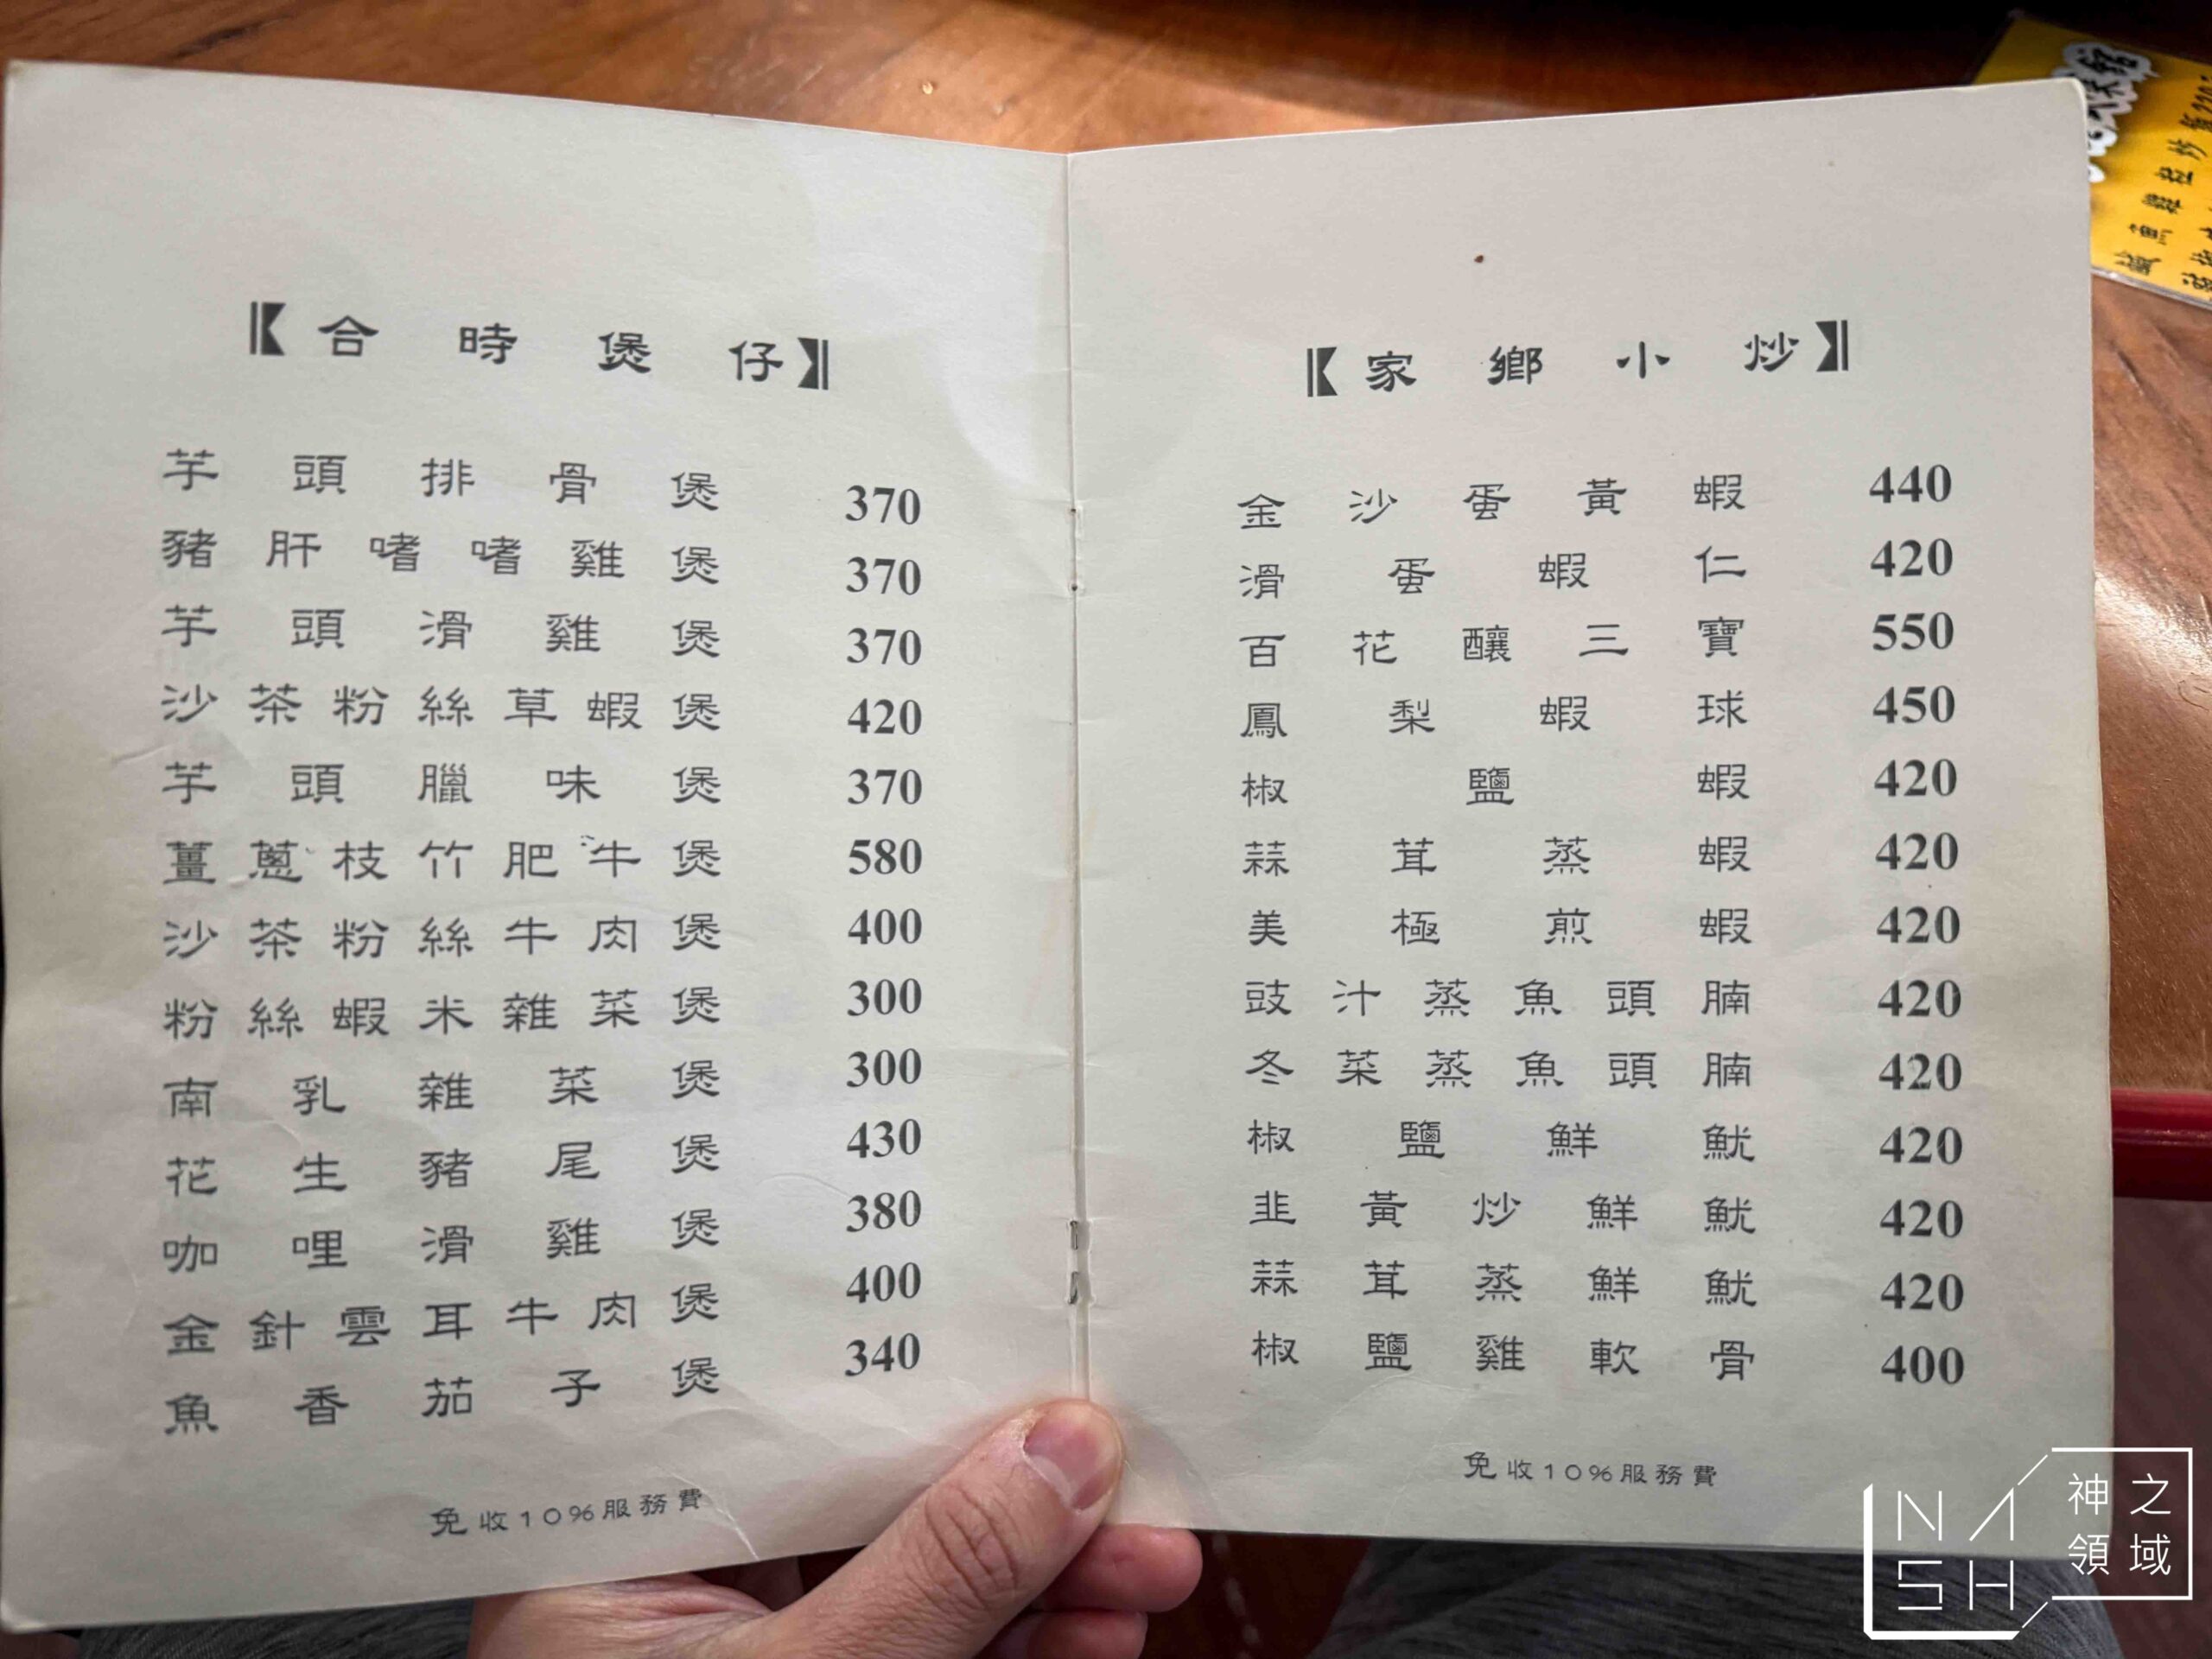 【合時煲仔】
芋頭排骨煲 370
豬肝嗜嗜雞煲 370
芋頭滑雞煲 370
沙茶粉絲草蝦煲 420
芋頭臘味煲 370
薑蔥枝竹肥牛煲 580
沙茶粉絲牛肉煲 400
粉絲蝦米雜菜煲 300
南乳雜菜煲 300
花生豬尾煲 430
咖哩滑雞煲 380
金針雲耳牛肉煲 400
魚香茄子煲 340
免收10%服務費
【家鄉小炒】
金沙蛋黃蝦 440
滑蛋蝦仁 420
百花釀三寶 550
鳳梨蝦球 450
椒鹽蝦 420
蒜茸蒸蝦 420
美極煎蝦 420
豉汁蒸魚頭腩 420
冬菜蒸魚頭腩 420
椒鹽鮮魷 420
韭黃炒鮮魷 420
蒜茸蒸鮮魷 420
椒鹽雞軟骨 400
免收10%服務費
NASH
神之
領域